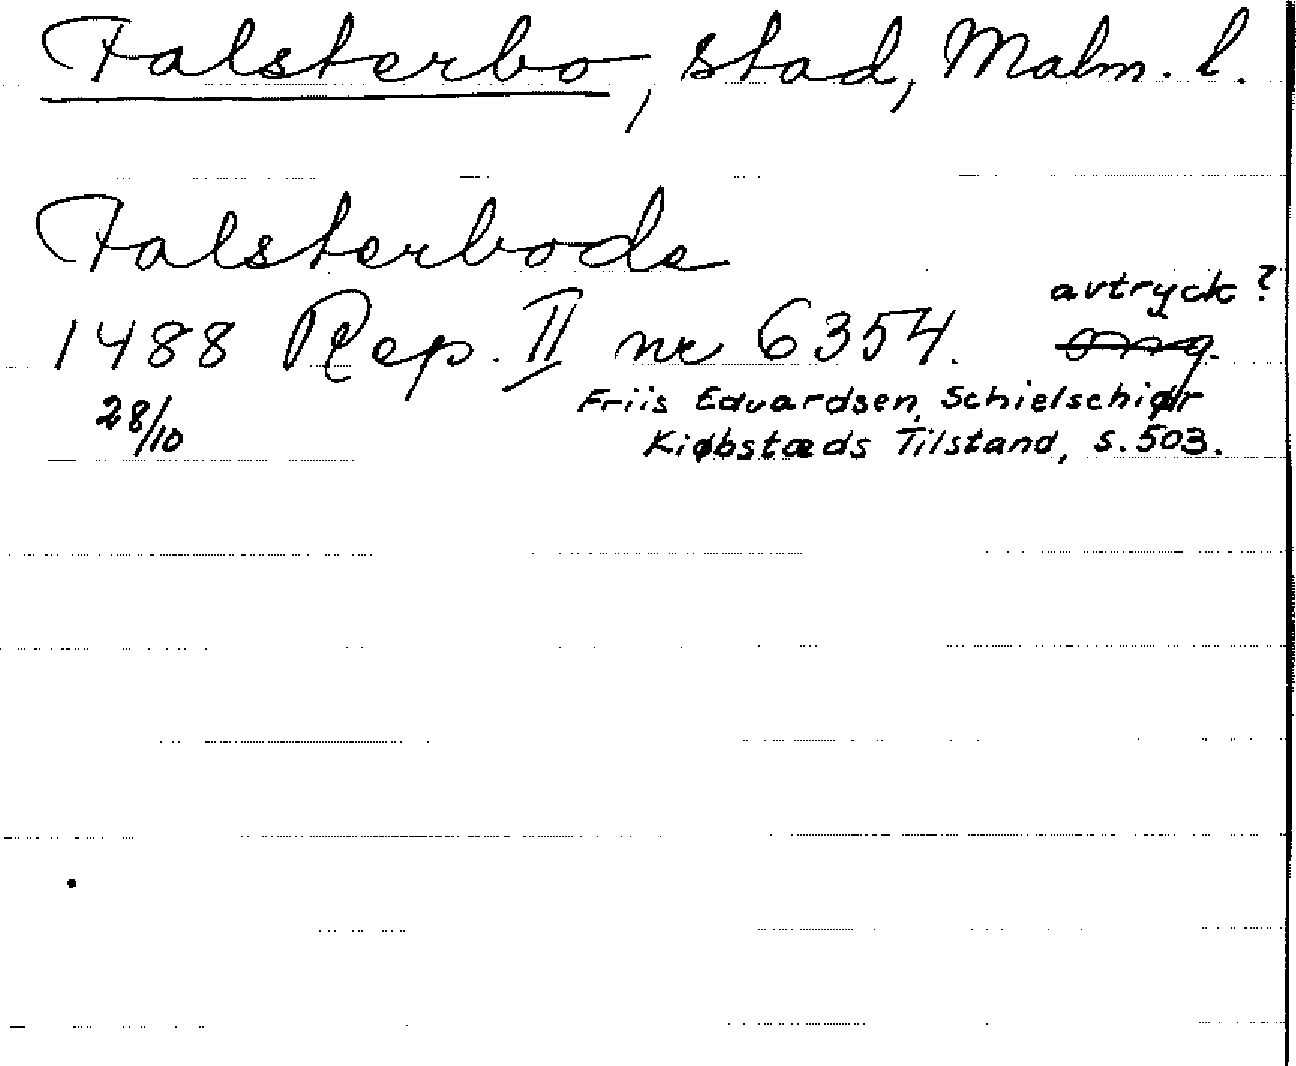 Falsterbo, stad, Malm. l.
Falsterbods
avtryck?
1488 Rep. II nr 6354. omg.
28/10 Friis Edvardsen, Schielschiør
Kiøbstæds Tilstand, s. 503.